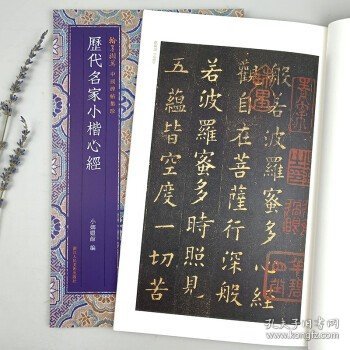 歷代名家小楷心經
編
般若波羅蜜多心經
觀自在菩薩行深般
若波羅蜜多時照見
五蘊皆空度一切苦
孔夫子旧书网